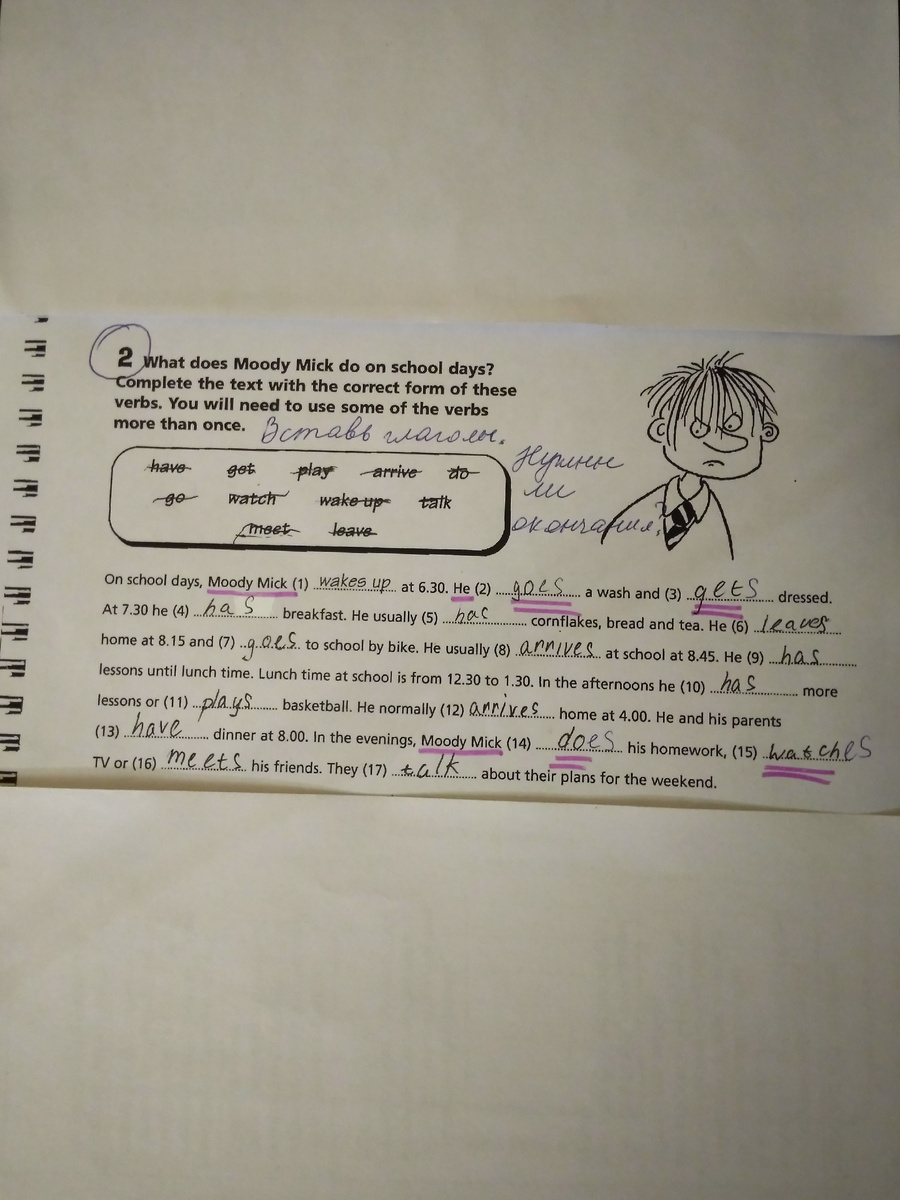 2 What does Moody Mick do on school days?
Complete the text with the correct form of these
verbs. You will need to use some of the verbs
more than once. Вставь глаголы.
Нужны
ли
окончания?
have get play arrive do
go watch wake up talk
meet leave
On school days, Moody Mick (1) wakes up at 6.30. He (2) goes a wash and (3) gets dressed.
At 7.30 he (4) has breakfast. He usually (5) has cornflakes, bread and tea. He (6) leaves
home at 8.15 and (7) goes to school by bike. He usually (8) arrives at school at 8.45. He (9) has
lessons until lunch time. Lunch time at school is from 12.30 to 1.30. In the afternoons he (10) has more
lessons or (11) plays basketball. He normally (12) arrives home at 4.00. He and his parents
(13) have dinner at 8.00. In the evenings, Moody Mick (14) does his homework, (15) watches
TV or (16) meets his friends. They (17) talk about their plans for the weekend.